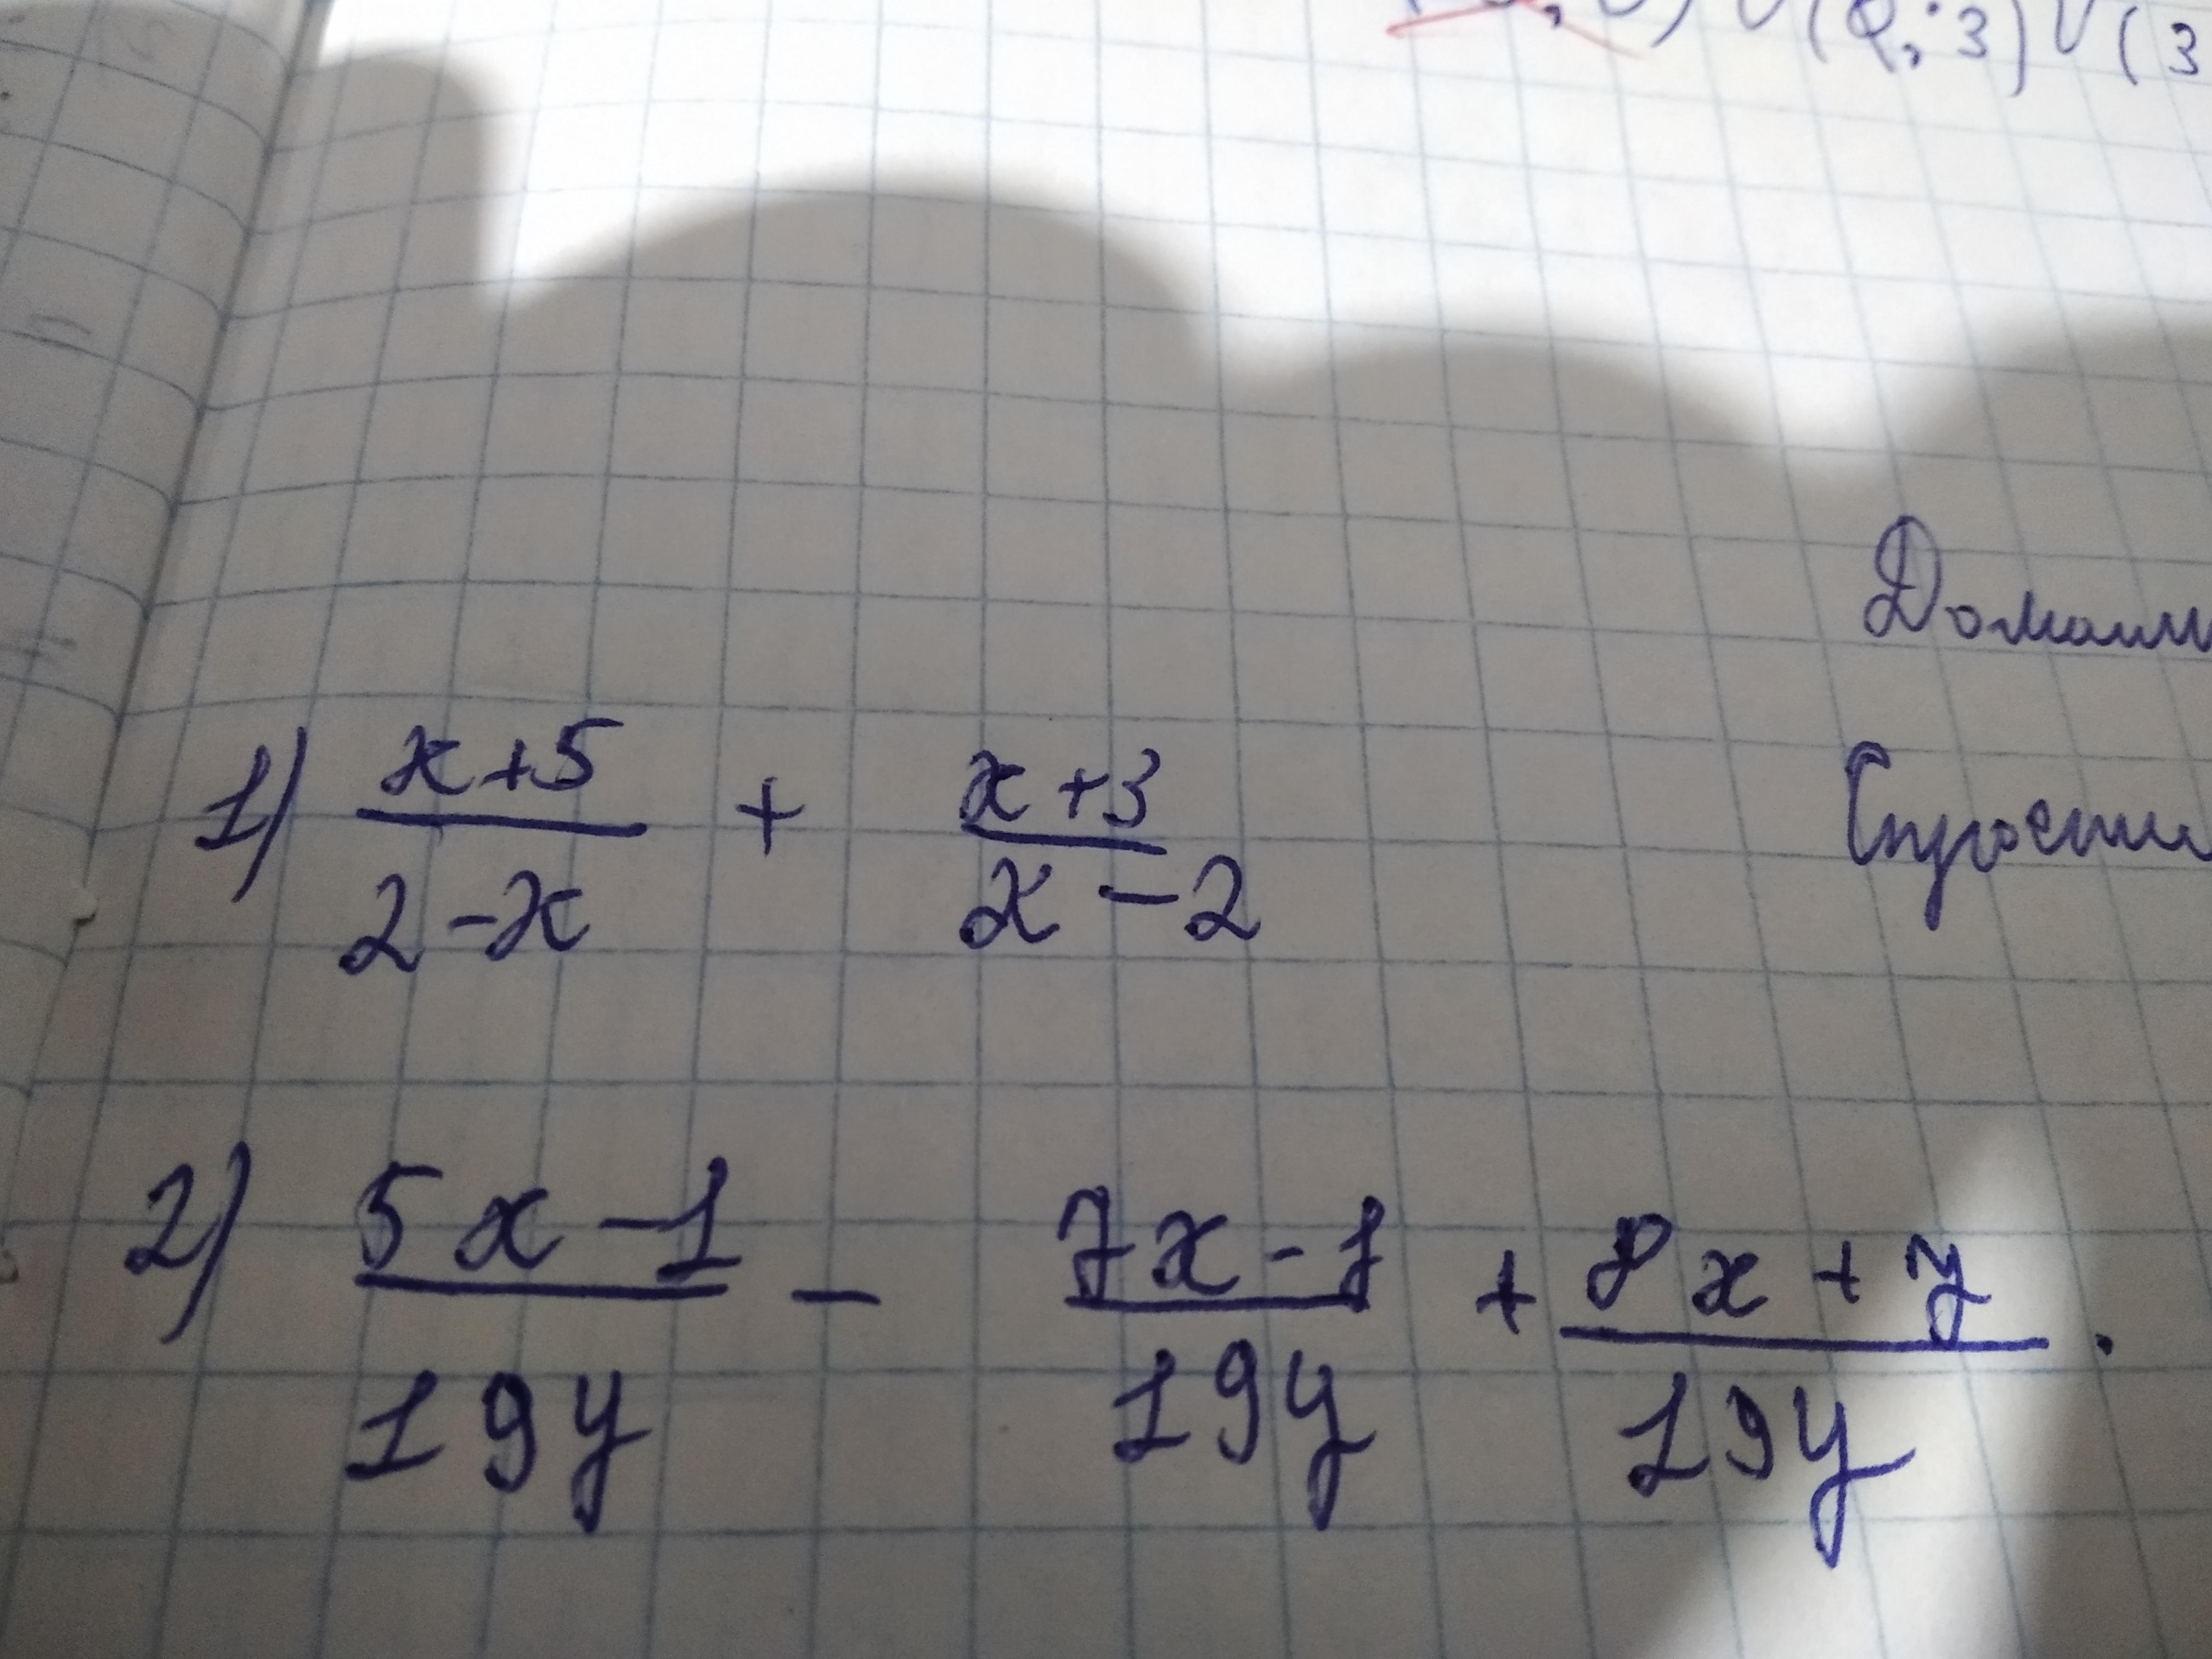 ; 3) ∪ (3
Домашн
Упрости
1) x+5/2-x + x+3/x-2
2) 5x-1/19y - 7x-8/19y + 8x+7/19y.